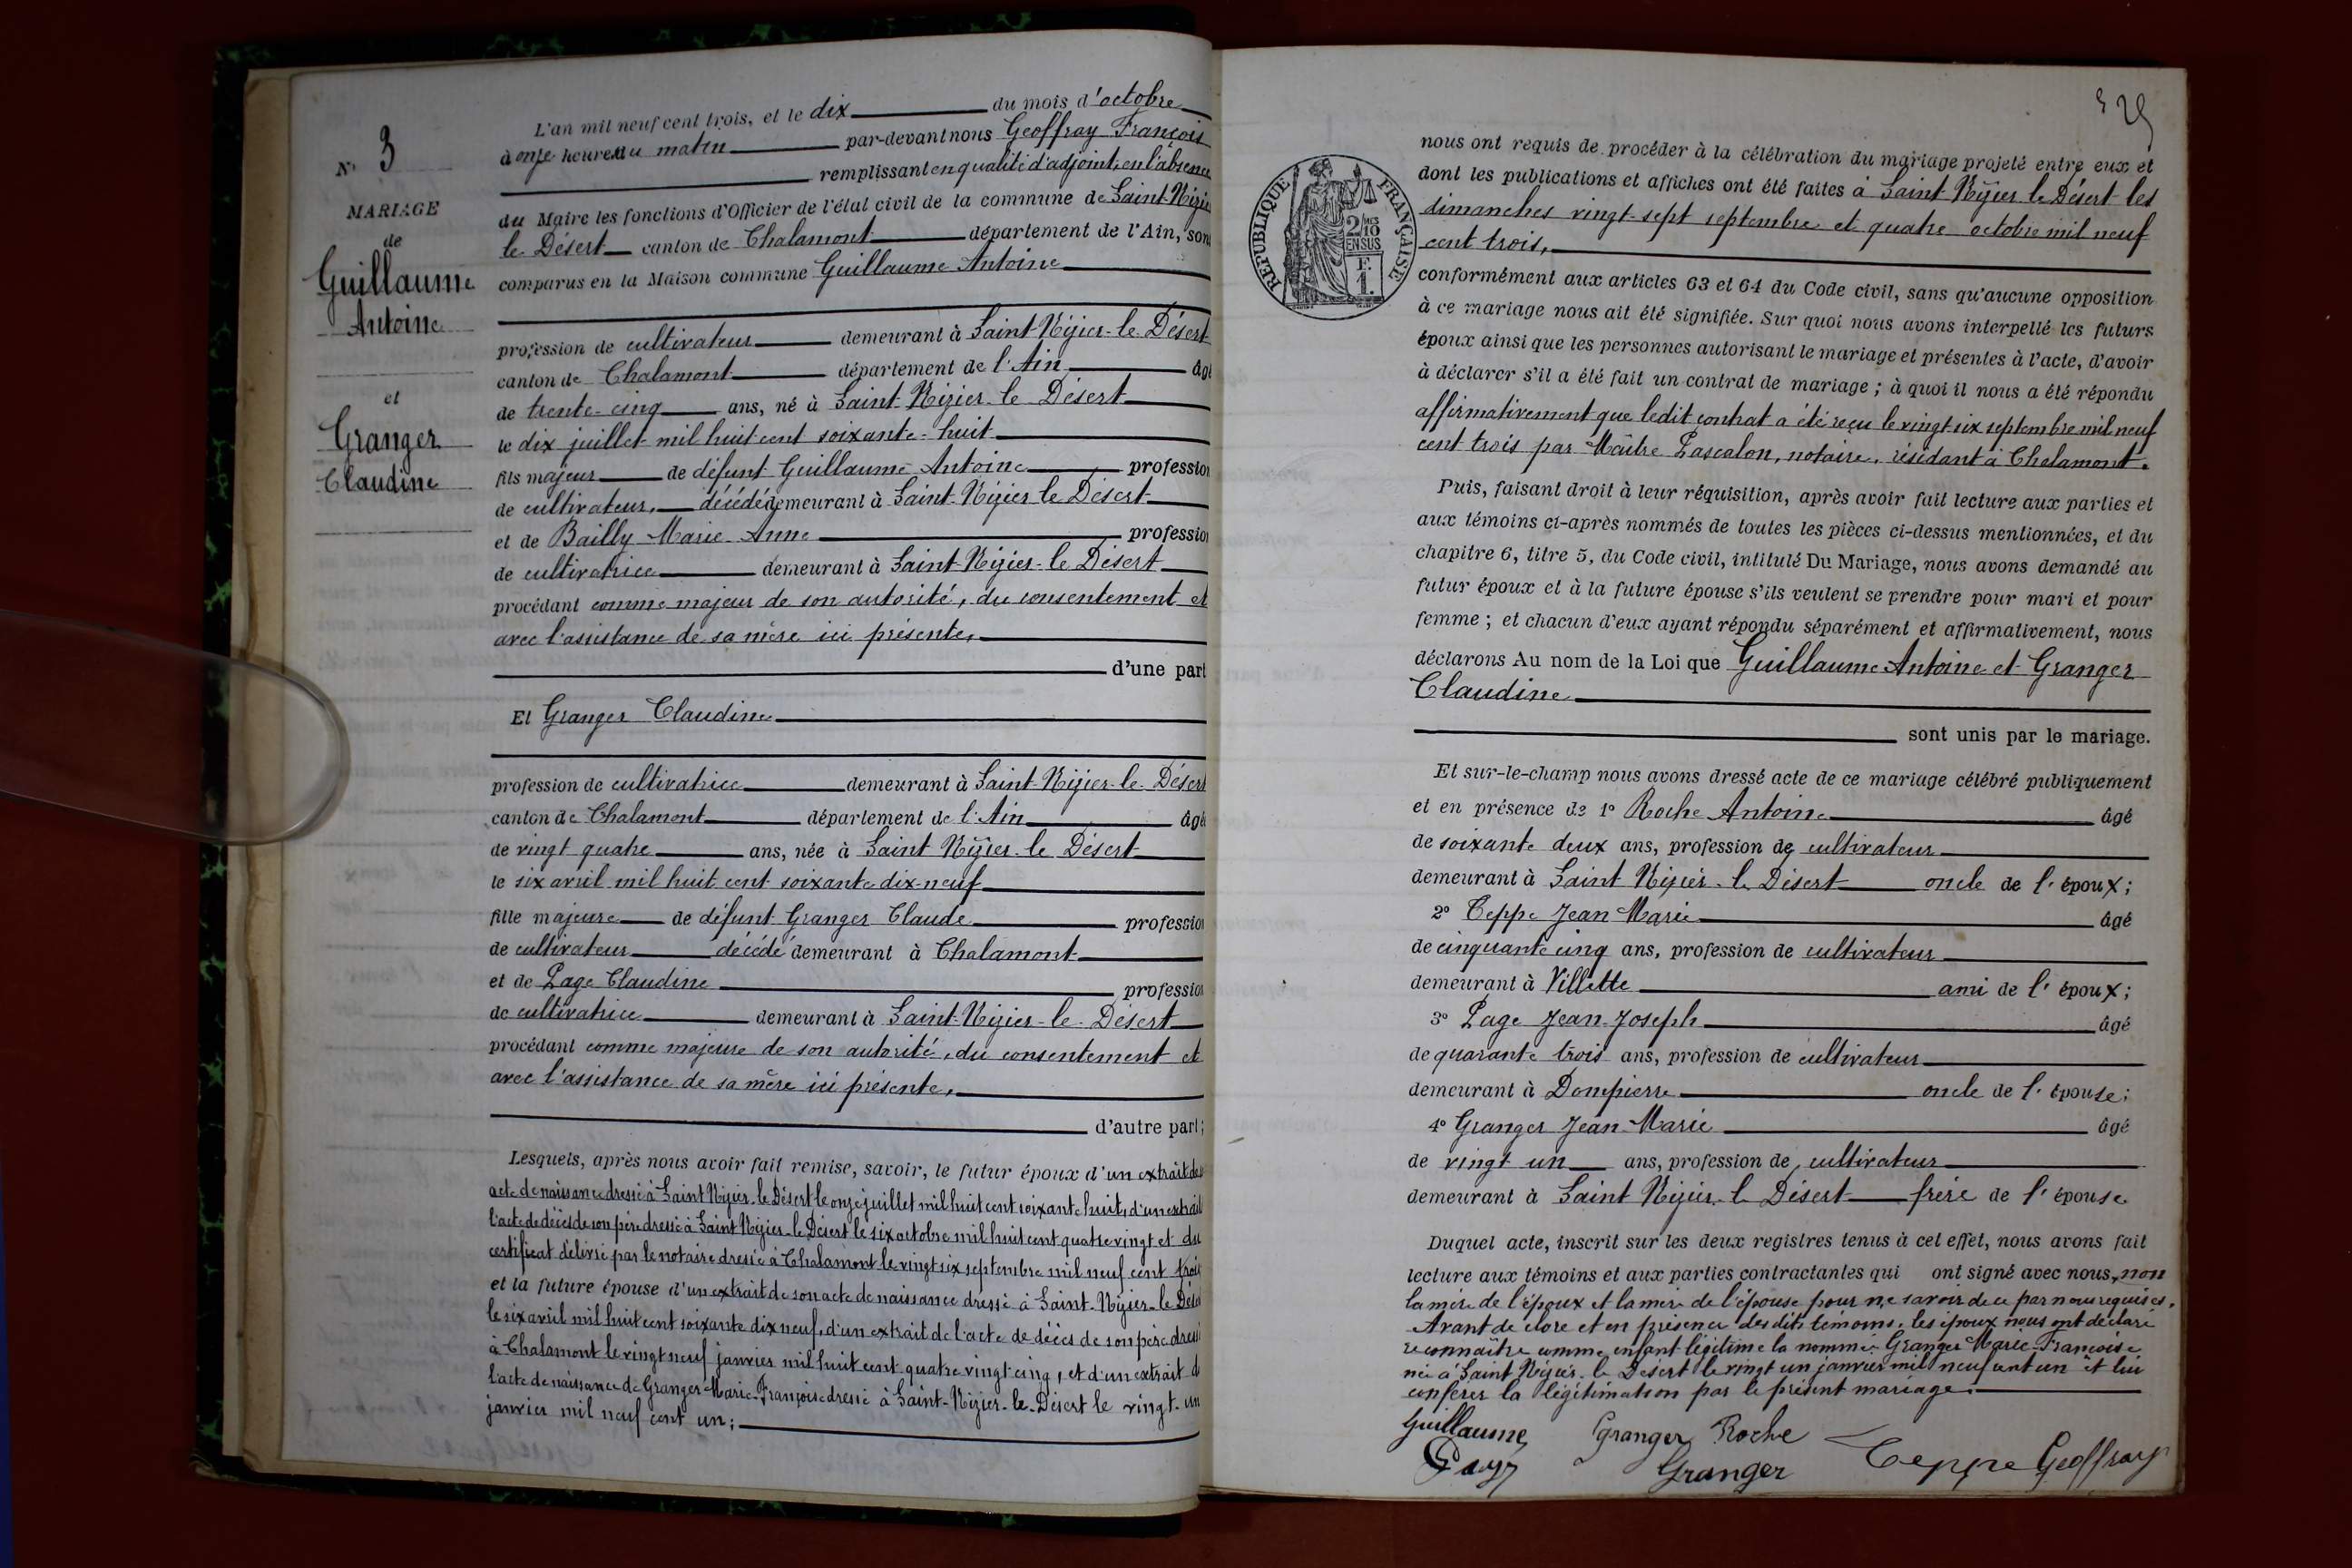 N° 3
MARIAGE
de
Guillaume
Antoine
et
Granger
Claudine
L'an mil neuf cent trois, et le dix du mois d'octobre
à onze heures du matin par-devant nous Geoffray François
remplissant en qualité d'adjoint, en l'absence
du Maire les fonctions d'Officier de l'état civil de la commune de Saint-Nizier
le Désert canton de Chalamont département de l'Ain, sont
comparus en la Maison commune Guillaume Antoine
profession de cultivateur demeurant à Saint-Nizier-le-Désert
canton de Chalamont département de l'Ain âgé
de trente-cinq ans, né à Saint-Nizier-le Désert
le dix juillet mil huit cent soixante-huit
fils majeur de défunt Guillaume Antoine profession
de cultivateur, décédé demeurant à Saint-Nizier-le Désert
et de Bailly Marie-Anne profession
de cultivatrice demeurant à Saint-Nizier-le Désert
procédant comme majeur de son autorité, du consentement et
avec l'assistance de sa mère ici présente,
d'une part
Et Granger Claudine
profession de cultivatrice demeurant à Saint-Nizier-le-Désert
canton de Chalamont département de l'Ain âgée
de vingt quatre ans, née à Saint Nizier-le Désert
le six avril mil huit cent soixante dix-neuf
fille majeure de défunt Granger Claude profession
de cultivateur décédé demeurant à Chalamont
et de Page Claudine profession
de cultivatrice demeurant à Saint-Nizier-le-Désert
procédant comme majeure de son autorité, du consentement et
avec l'assistance de sa mère ici présente,
d'autre part;
Lesquels, après nous avoir fait remise, savoir, le futur époux d'un extrait de
acte de naissance dressé à Saint Nizier-le Désert le onze juillet mil huit cent soixante huit, d'un extrait
l'acte de décès de son père dressé à Saint Nizier-le Désert le six octobre mil huit cent quatre vingt et du
certificat délivré par le notaire dressé à Chalamont le vingt six septembre mil neuf cent trois
et la future épouse d'un extrait de son acte de naissance dressé à Saint-Nizier-le Désert
le six avril mil huit cent soixante dix neuf, d'un extrait de l'acte de décès de son père dressé
à Chalamont le vingt neuf janvier mil huit cent quatre vingt cinq, et d'un extrait d
l'acte de naissance de Granger Marie-Françoise dressé à Saint-Nizier-le-Désert le vingt-un
janvier mil neuf cent un;
RÉPUBLIQUE FRANÇAISE
2/10
EN SUS
F.
1.
nous ont requis de procéder à la célébration du mariage projeté entre eux et
dont les publications et affiches ont été faites à Saint Nizier le Désert les
dimanches vingt-sept septembre et quatre octobre mil neuf
cent trois,
conformément aux articles 63 et 64 du Code civil, sans qu'aucune opposition
à ce mariage nous ait été signifiée. Sur quoi nous avons interpellé les futurs
époux ainsi que les personnes autorisant le mariage et présentes à l'acte, d'avoir
à déclarer s'il a été fait un contrat de mariage; à quoi il nous a été répondu
affirmativement que ledit contrat a été reçu le vingt six septembre mil neuf
cent trois par Maître Pascalon, notaire, résidant à Chalamont.
Puis, faisant droit à leur réquisition, après avoir fait lecture aux parties et
aux témoins ci-après nommés de toutes les pièces ci-dessus mentionnées, et du
chapitre 6, titre 5, du Code civil, intitulé Du Mariage, nous avons demandé au
futur époux et à la future épouse s'ils veulent se prendre pour mari et pour
femme; et chacun d'eux ayant répondu séparément et affirmativement, nous
déclarons Au nom de la Loi que Guillaume Antoine et Granger
Claudine
sont unis par le mariage.
Et sur-le-champ nous avons dressé acte de ce mariage célébré publiquement
et en présence de 1° Roche Antoine âgé
de soixante deux ans, profession de cultivateur
demeurant à Saint Nizier-le Désert oncle de l'époux;
2° Teppe Jean Marie âgé
de cinquante cinq ans, profession de cultivateur
demeurant à Villette ami de l'époux;
3° Page Jean-Joseph âgé
de quarante trois ans, profession de cultivateur
demeurant à Dompierre oncle de l'épouse;
4° Granger Jean-Marie âgé
de vingt un ans, profession de cultivateur
demeurant à Saint Nizier-le Désert frère de l'épouse
Duquel acte, inscrit sur les deux registres tenus à cet effet, nous avons fait
lecture aux témoins et aux parties contractantes qui ont signé avec nous, non
la mère de l'époux et la mère de l'épouse pour ne savoir de ce par nous requises.
Avant de clore et en présence des dits témoins, les époux nous ont déclaré
reconnaître comme enfant légitime la nommée Granger Marie-Françoise
née à Saint Nizier-le Désert le vingt un janvier mil neuf cent un et lui
conférer la légitimation par le présent mariage.
Guillaume Granger Roche
Page Granger Teppe Geoffray